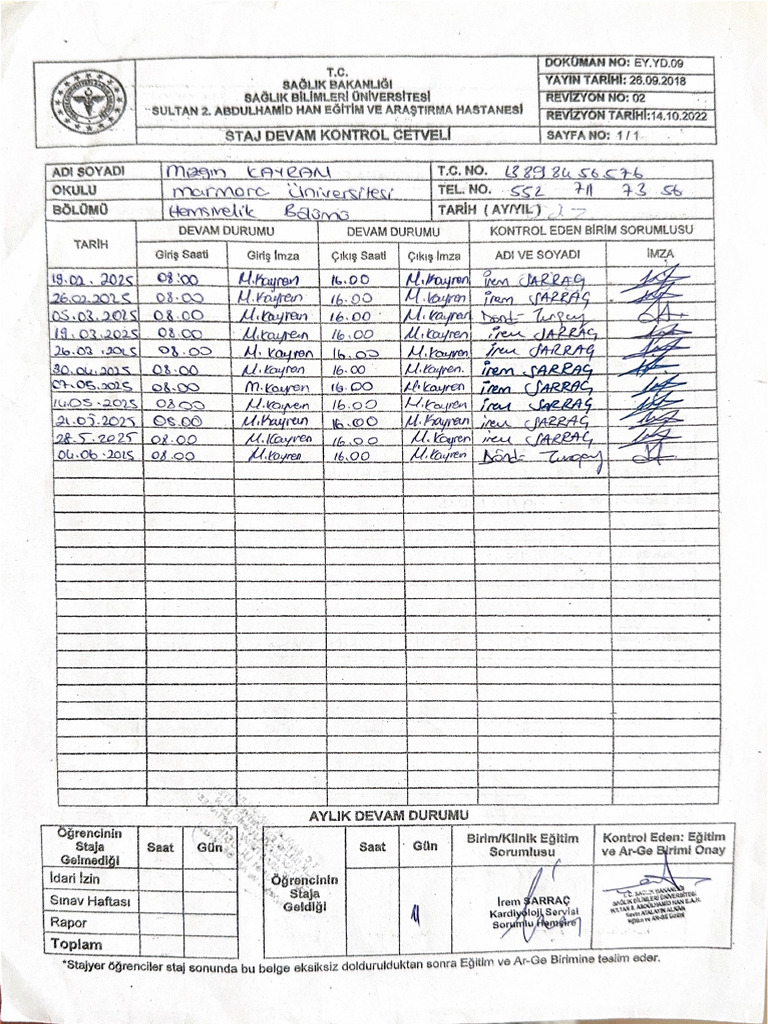 T.C.
SAĞLIK BAKANLIĞI
SAĞLIK BİLİMLERİ ÜNİVERSİTESİ
SULTAN 2. ABDULHAMİD HAN EĞİTİM VE ARAŞTIRMA HASTANESİ
STAJ DEVAM KONTROL CETVELİ
DOKÜMAN NO: EY.YD.09
YAYIN TARİHİ: 26.09.2018
REVİZYON NO: 02
REVİZYON TARİHİ:14.10.2022
SAYFA NO: 1 / 1
ADI SOYADI KAYRAN T.C. NO.
OKULU Marmara Üniversitesi TEL. NO. 552 711 73 56
BÖLÜMÜ Hemşirelik Bölümü TARİH ( AY/YIL )
TARİH DEVAM DURUMU DEVAM DURUMU KONTROL EDEN BİRİM SORUMLUSU
Giriş Saati Giriş İmza Çıkış Saati Çıkış İmza ADI VE SOYADI İMZA
19.02.2025 08:00 M.Kayren 16.00 M.Kayren İrem SARRAÇ
26.02.2025 08:00 M.Kayren 16.00 M.Kayren İrem SARRAÇ
05.03.2025 08:00 M.Kayren 16.00 M.Kayren
19.03.2025 08.00 M.Kayren 16.00 M.Kayren İrem SARRAÇ
26.03.2025 08.00 M.Kayren 16.00 M.Kayren İrem SARRAÇ
30.04.2025 08:00 M.Kayren 16.00 M.Kayren. İrem SARRAÇ
07.05.2025 08:00 M.Kayren 16.00 M.Kayren İrem SARRAÇ
14.05.2025 08:00 M.Kayren 16.00 M.Kayren İrem SARRAÇ
21.05.2025 08.00 M.Kayren 16.00 M.Kayren İrem SARRAÇ
28.5.2025 08:00 M.Kayren 16.00 M.Kayren İrem SARRAÇ
04.06.2025 08:00 M.Kayren 16.00 M.Kayren
AYLIK DEVAM DURUMU
Öğrencinin Staja Gelmediği Saat Gün
İdari İzin
Sınav Haftası
Rapor
Toplam
Öğrencinin Staja Geldiği Saat Gün
11
Birim/Klinik Eğitim Sorumlusu
İrem SARRAÇ
Kardiyoloji Servisi
Sorumlu Hemşire
Kontrol Eden: Eğitim ve Ar-Ge Birimi Onay
T.C. SAĞLIK BAKANLIĞI
SAĞLIK BİLİMLERİ ÜNİVERSİTESİ
SULTAN 2. ABDÜLHAMİD HAN E.A.H.
Eğitim ve Ar-Ge Birimi
*Stajyer öğrenciler staj sonunda bu belge eksiksiz doldurulduktan sonra Eğitim ve Ar-Ge Birimine teslim eder.